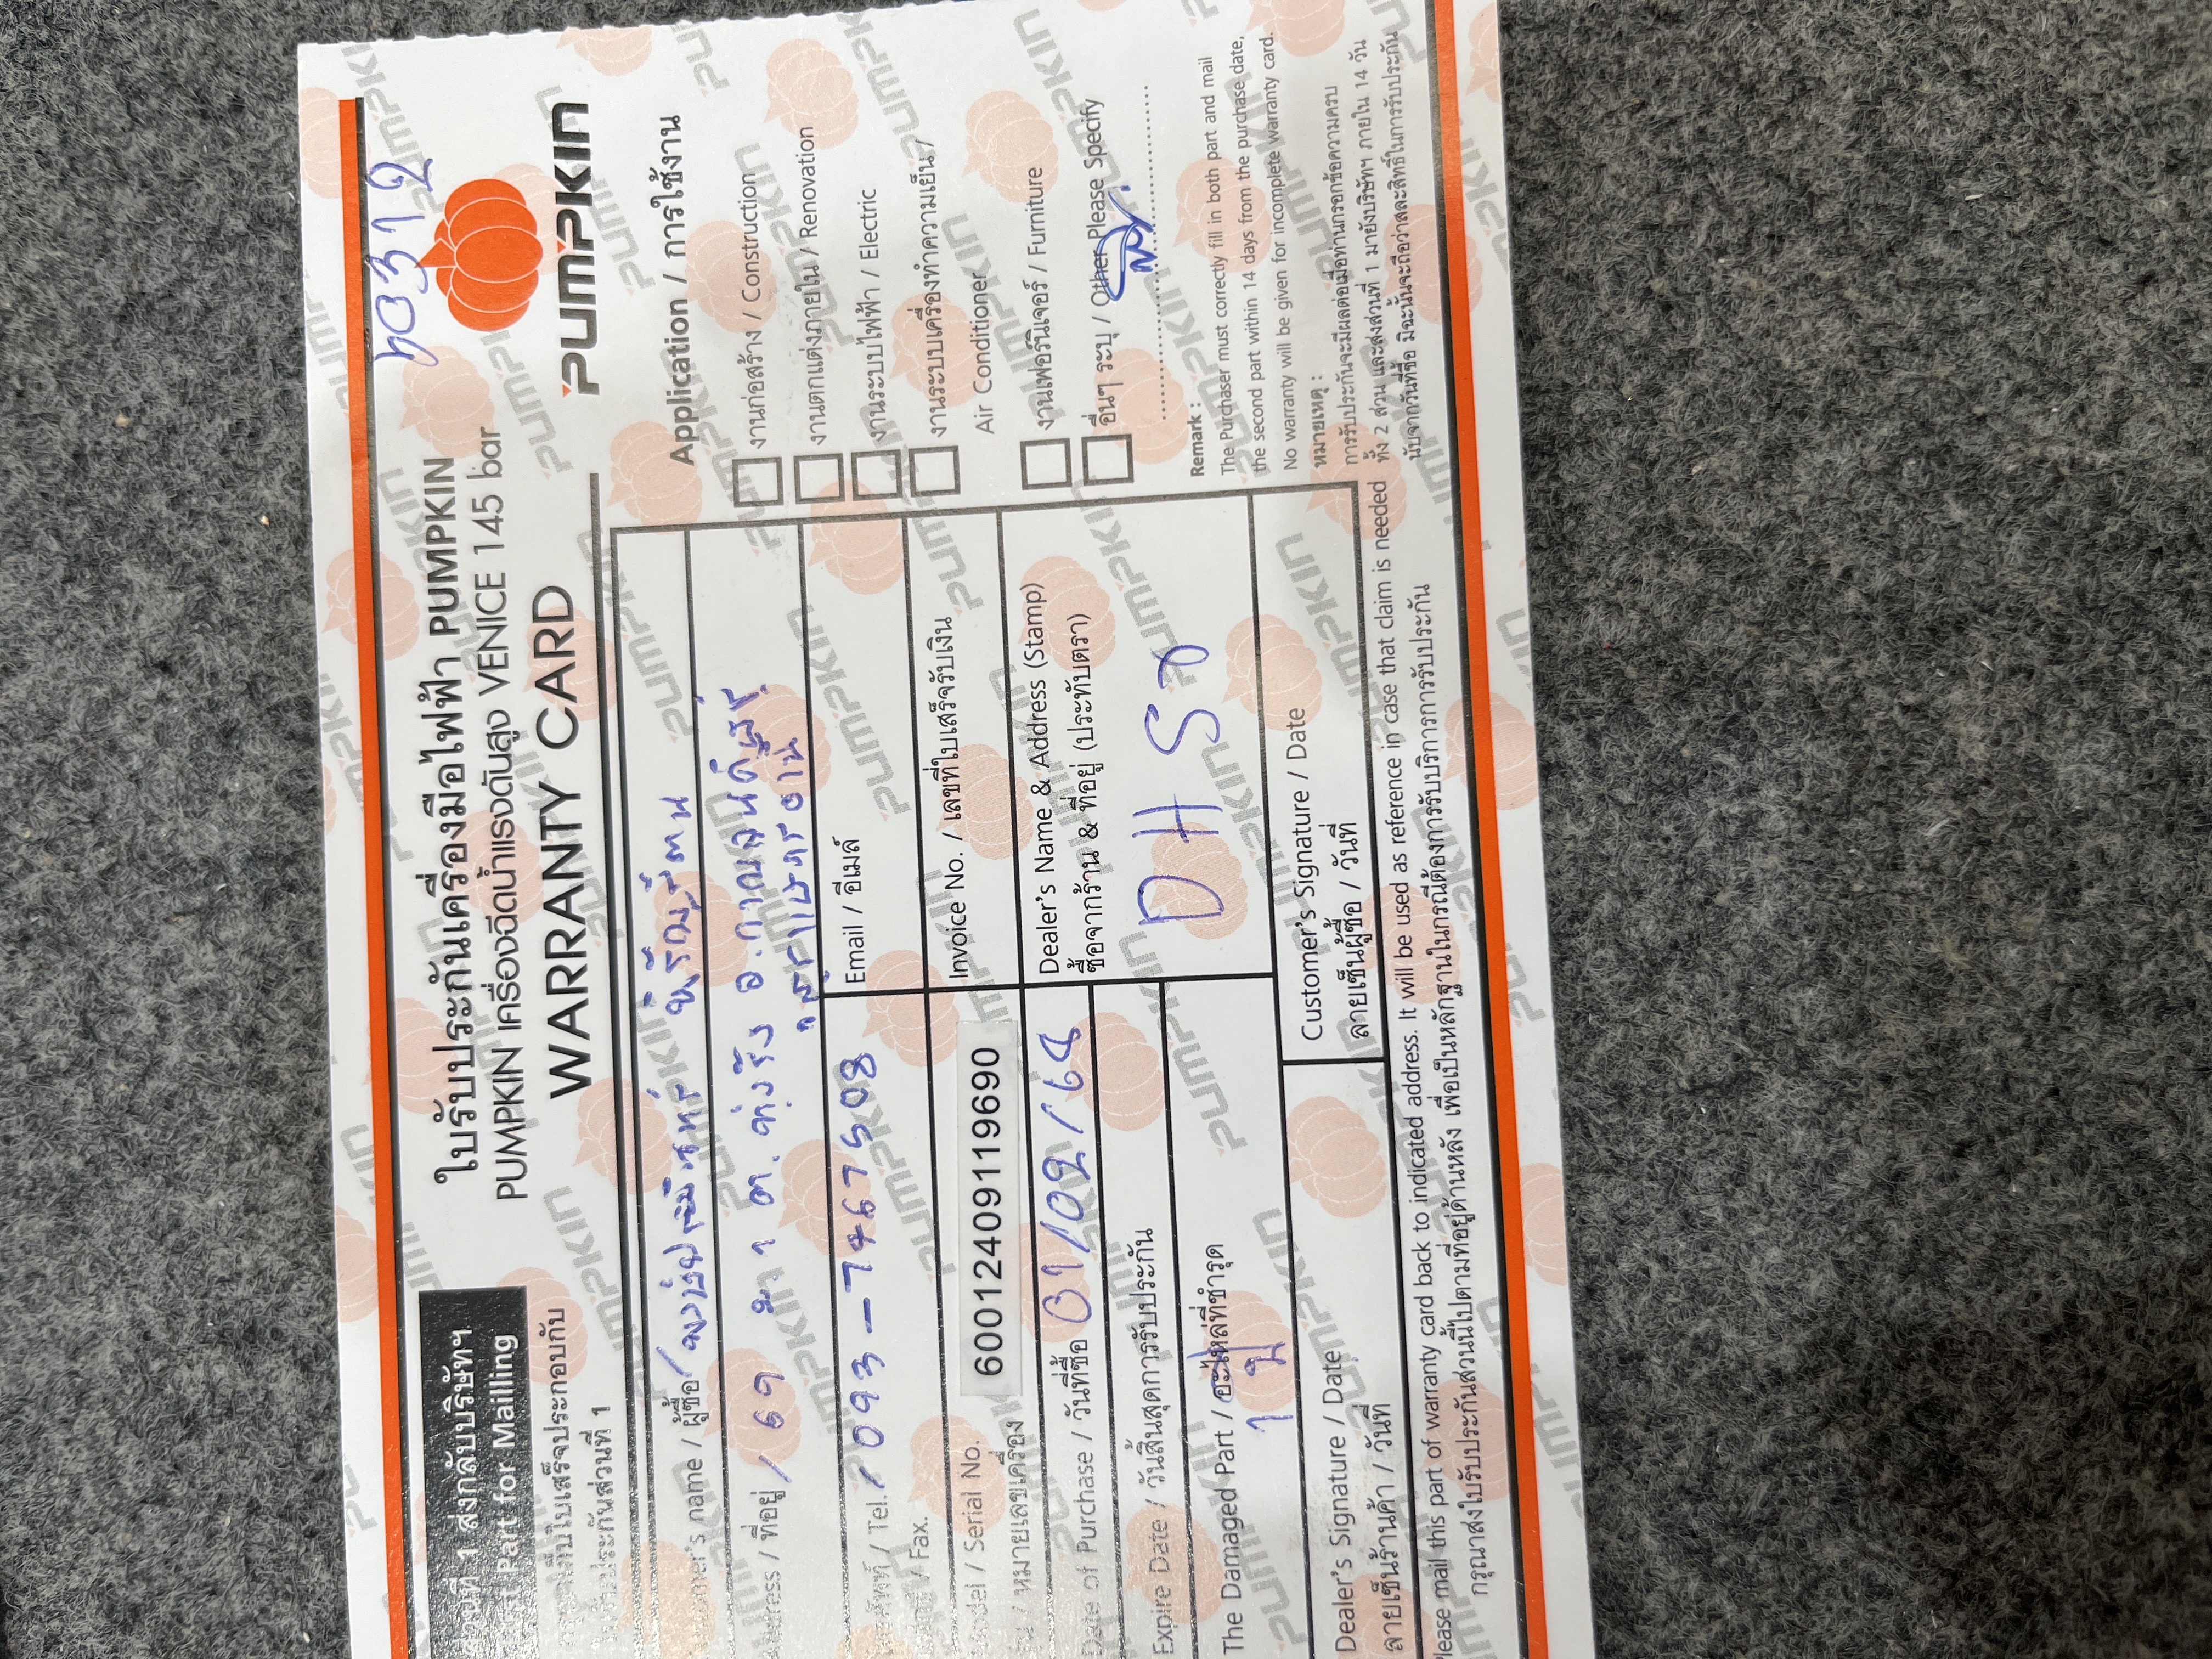 ส่วนที่ 1 ส่งกลับบริษัทฯ
Part for Mailling
ใบเสร็จประกอบกับ
ประกันส่วนที่ 1
ใบรับประกันเครื่องมือไฟฟ้า PUMPKIN
PUMPKIN เครื่องฉีดน้ำแรงดันสูง VENICE 145 bar
WARRANTY CARD
PUMPKIN
name / ผู้ซื้อ
/ ที่อยู่ / 69 ม. 1 ต.
/ Tel. / 093-7467508
Email / อีเมล์
/ Fax.
Model / Serial No.
/ หมายเลขเครื่อง
600124091119690
Invoice No. / เลขที่ใบเสร็จรับเงิน
Date of Purchase / วันที่ซื้อ 01/02/68
Dealer's Name & Address (Stamp)
ซื้อจากร้าน & ที่อยู่ (ประทับตรา)
DH
Expire Date / วันสิ้นสุดการรับประกัน
The Damaged Part / อะไหล่ที่ชำรุด
1 ปี
Dealer's Signature / Date
ลายเซ็นร้านค้า / วันที่
Customer's Signature / Date
ลายเซ็นผู้ซื้อ / วันที่
Application / การใช้งาน
งานก่อสร้าง / Construction
งานตกแต่งภายใน / Renovation
งานระบบไฟฟ้า / Electric
งานระบบเครื่องทำความเย็น /
Air Conditioner
งานเฟอร์นิเจอร์ / Furniture
อื่นๆ ระบุ / Other Please Specify
Remark :
The Purchaser must correctly fill in both part and mail
the second part within 14 days from the purchase date,
No warranty will be given for incomplete warranty card.
หมายเหตุ :
การรับประกันจะมีผลต่อเมื่อท่านกรอกข้อความครบ
ทั้ง 2 ส่วน และส่งส่วนที่ 1 มายังบริษัทฯ ภายใน 14 วัน
นับจากวันที่ซื้อ มิฉะนั้นจะถือว่าสละสิทธิ์ในการรับประกัน
Please mail this part of warranty card back to indicated address. It will be used as reference in case that claim is needed
กรุณาส่งใบรับประกันส่วนนี้ไปตามที่อยู่ด้านหลัง เพื่อเป็นหลักฐานในกรณีต้องการรับบริการการรับประกัน